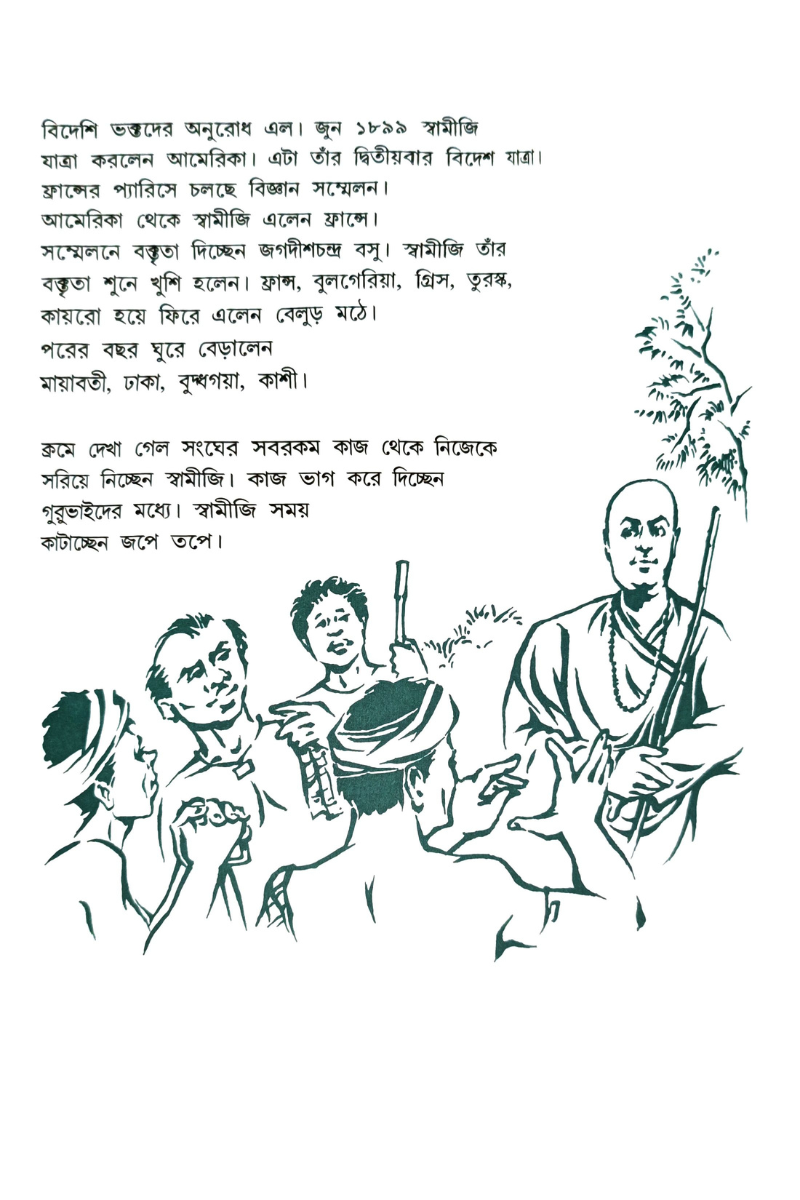 বিদেশি ভক্তদের অনুরোধ এল। জুন ১৮৯৯ স্বামীজি
যাত্রা করলেন আমেরিকা। এটা তাঁর দ্বিতীয়বার বিদেশ যাত্রা।
ফ্রান্সের প্যারিসে চলছে বিজ্ঞান সম্মেলন।
আমেরিকা থেকে স্বামীজি এলেন ফ্রান্সে।
সম্মেলনে বক্তৃতা দিচ্ছেন জগদীশচন্দ্র বসু। স্বামীজি তাঁর
বক্তৃতা শুনে খুশি হলেন। ফ্রান্স, বুলগেরিয়া, গ্রিস, তুরস্ক,
কায়রো হয়ে ফিরে এলেন বেলুড় মঠে।
পরের বছর ঘুরে বেড়ালেন
মায়াবতী, ঢাকা, বুদ্ধগয়া, কাশী।
ক্রমে দেখা গেল সংঘের সবরকম কাজ থেকে নিজেকে
সরিয়ে নিচ্ছেন স্বামীজি। কাজ ভাগ করে দিচ্ছেন
গুরুভাইদের মধ্যে। স্বামীজি সময়
কাটাচ্ছেন জপে তপে।